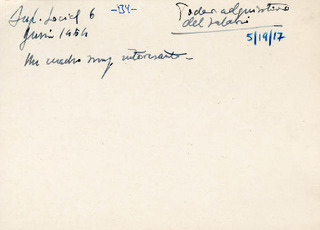 Inf. Social 6
-134-
Junio 1954
Poder adquisitivo
del salario
5/19/17
Un cuadro muy interesante